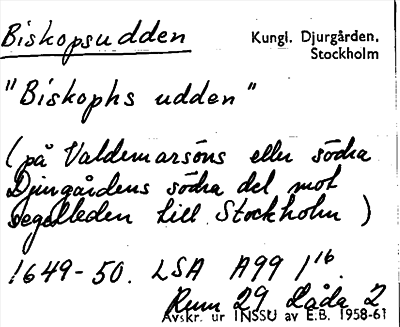 Biskopsudden
Kungl. Djurgården.
Stockholm
"Biskophs udden"
(på Valdemarsöns eller södra
Djurgårdens södra del mot
segelleden till Stockholm)
1649-50. LSA A99 1¹⁶.
Rum 29 Låda 2
Avskr. ur INSSU av E.B. 1958-61